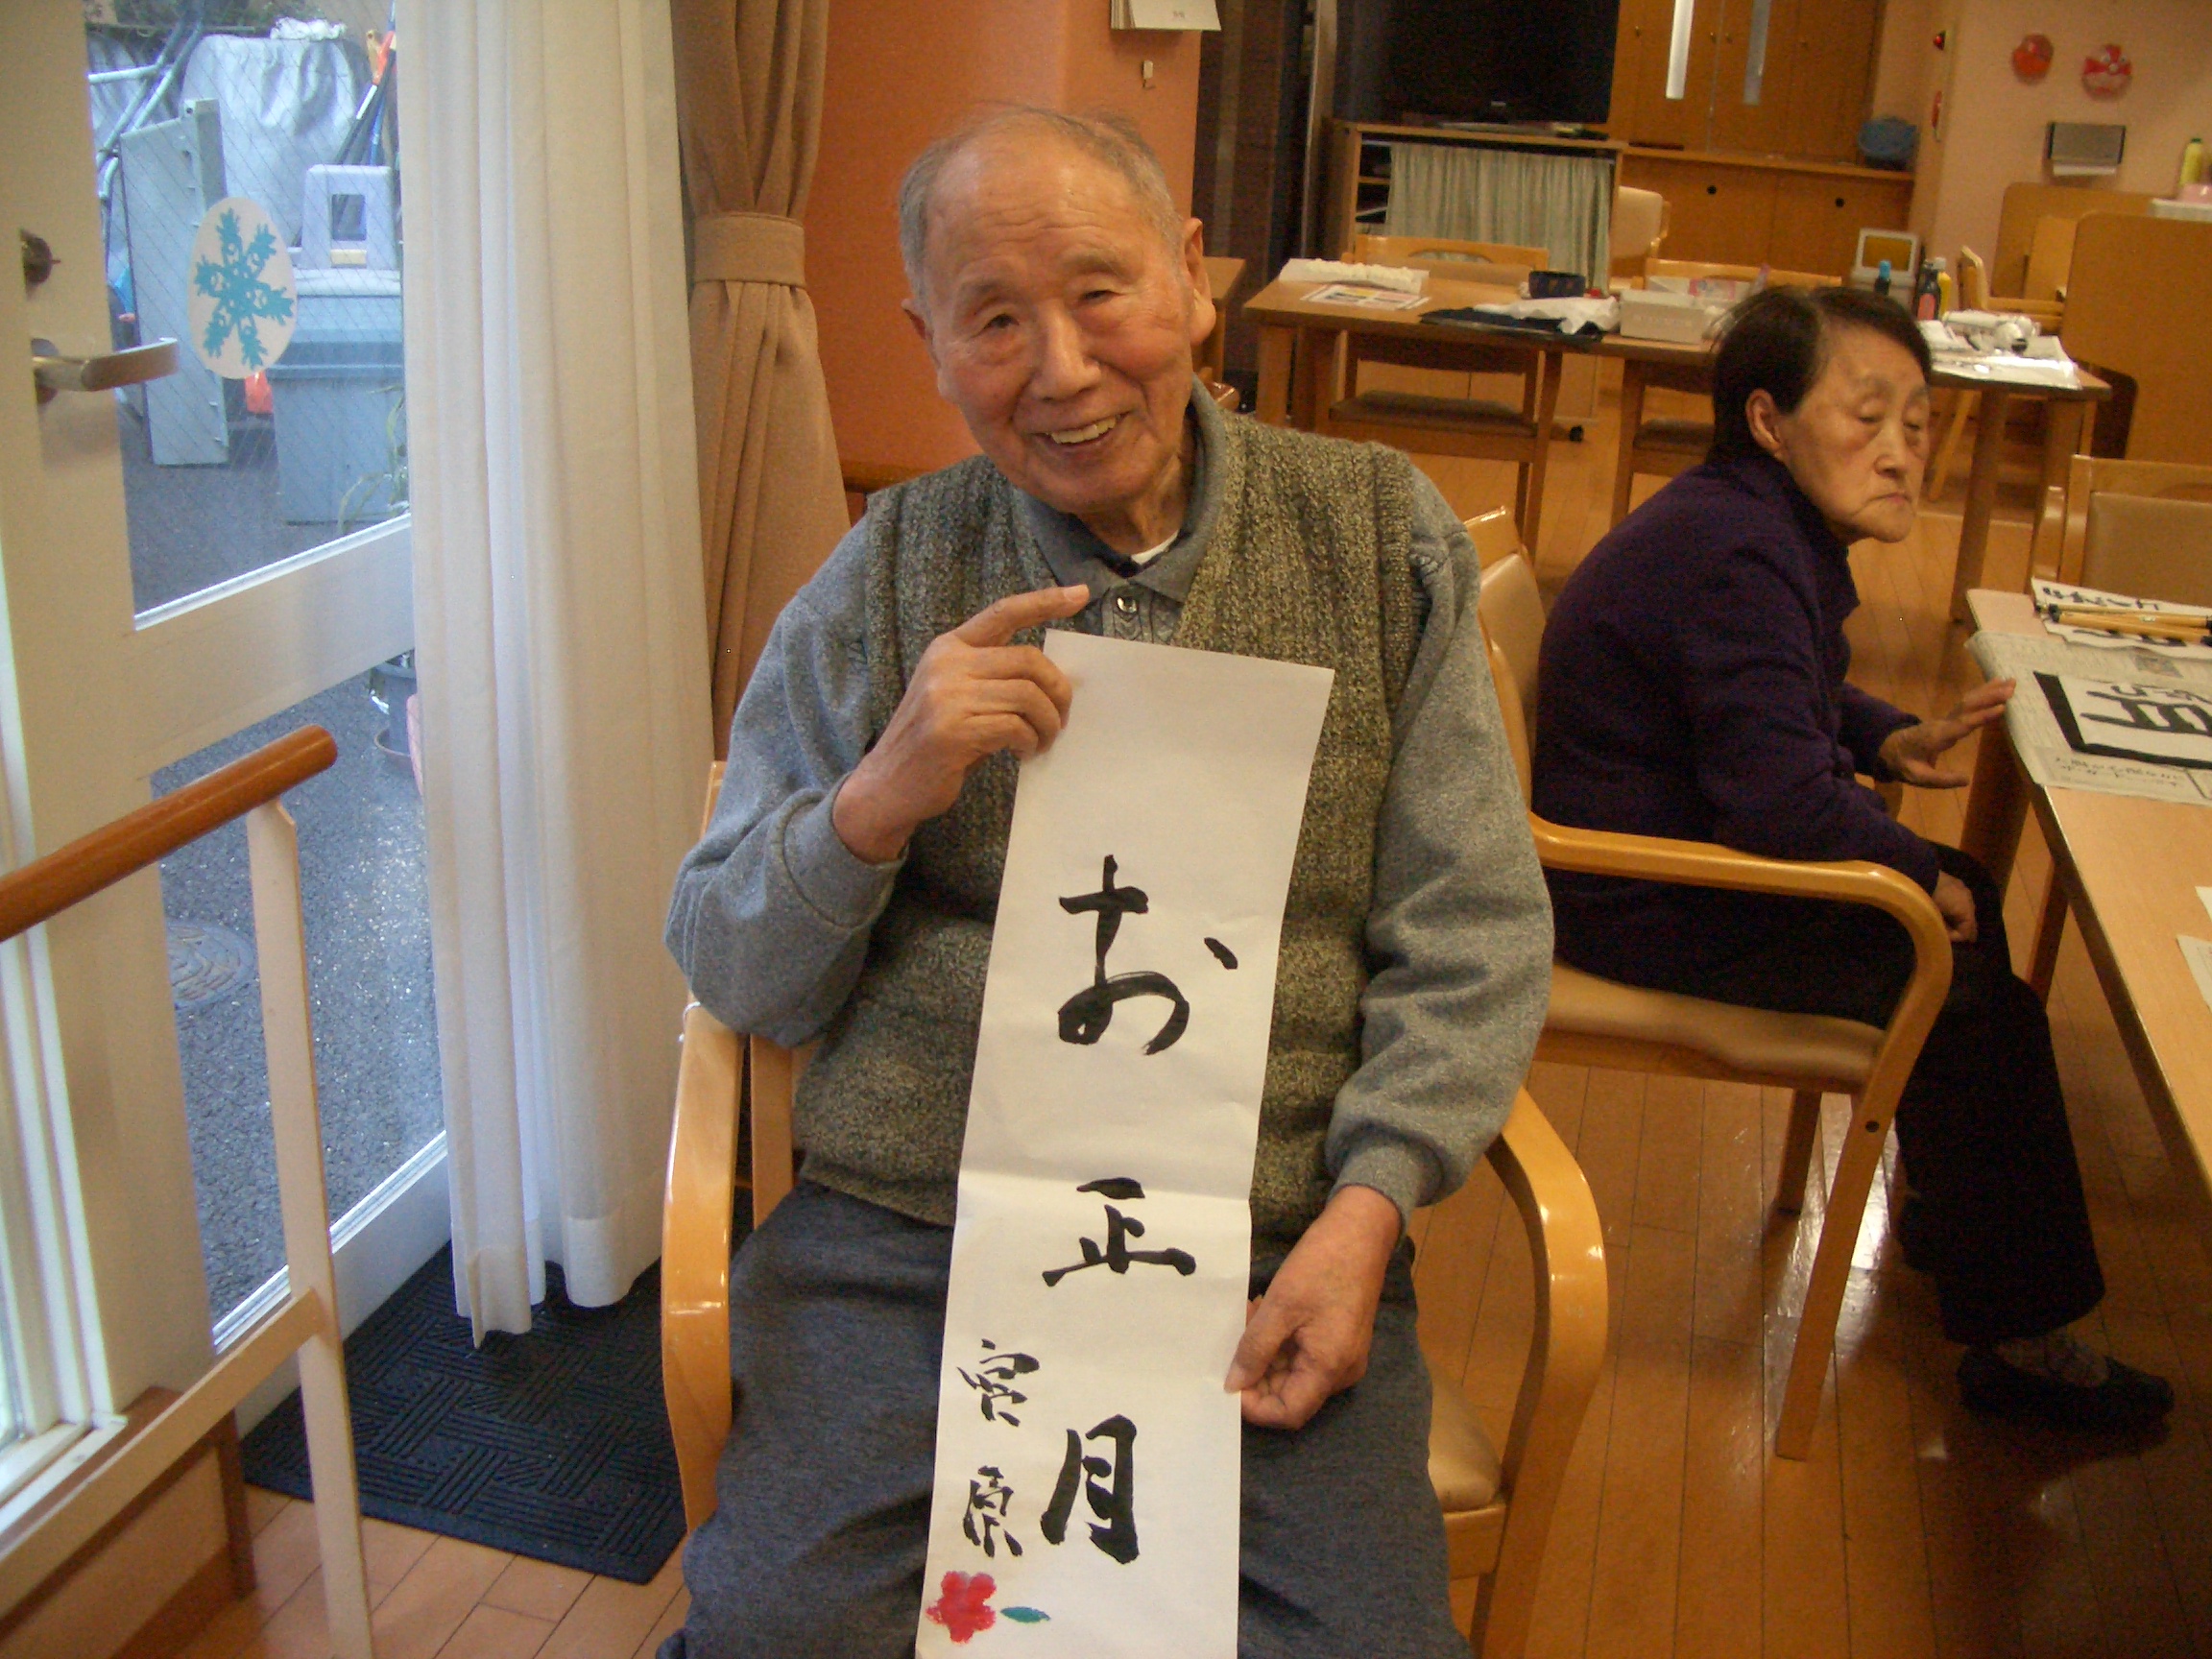 お正月
宮原